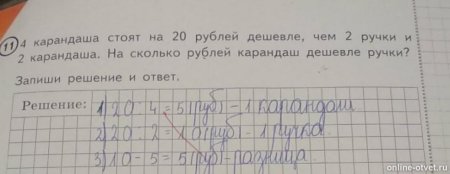 11 4 карандаша стоят на 20 рублей дешевле, чем 2 ручки и
2 карандаша. На сколько рублей карандаш дешевле ручки?
Запиши решение и ответ.
Решение: 1) 20 : 4 = 5 (руб) - 1 карандаш
2) 20 : 2 = 10 (руб) - 1 ручка
3) 10 - 5 = 5 (руб) - разница
online-otvet.ru